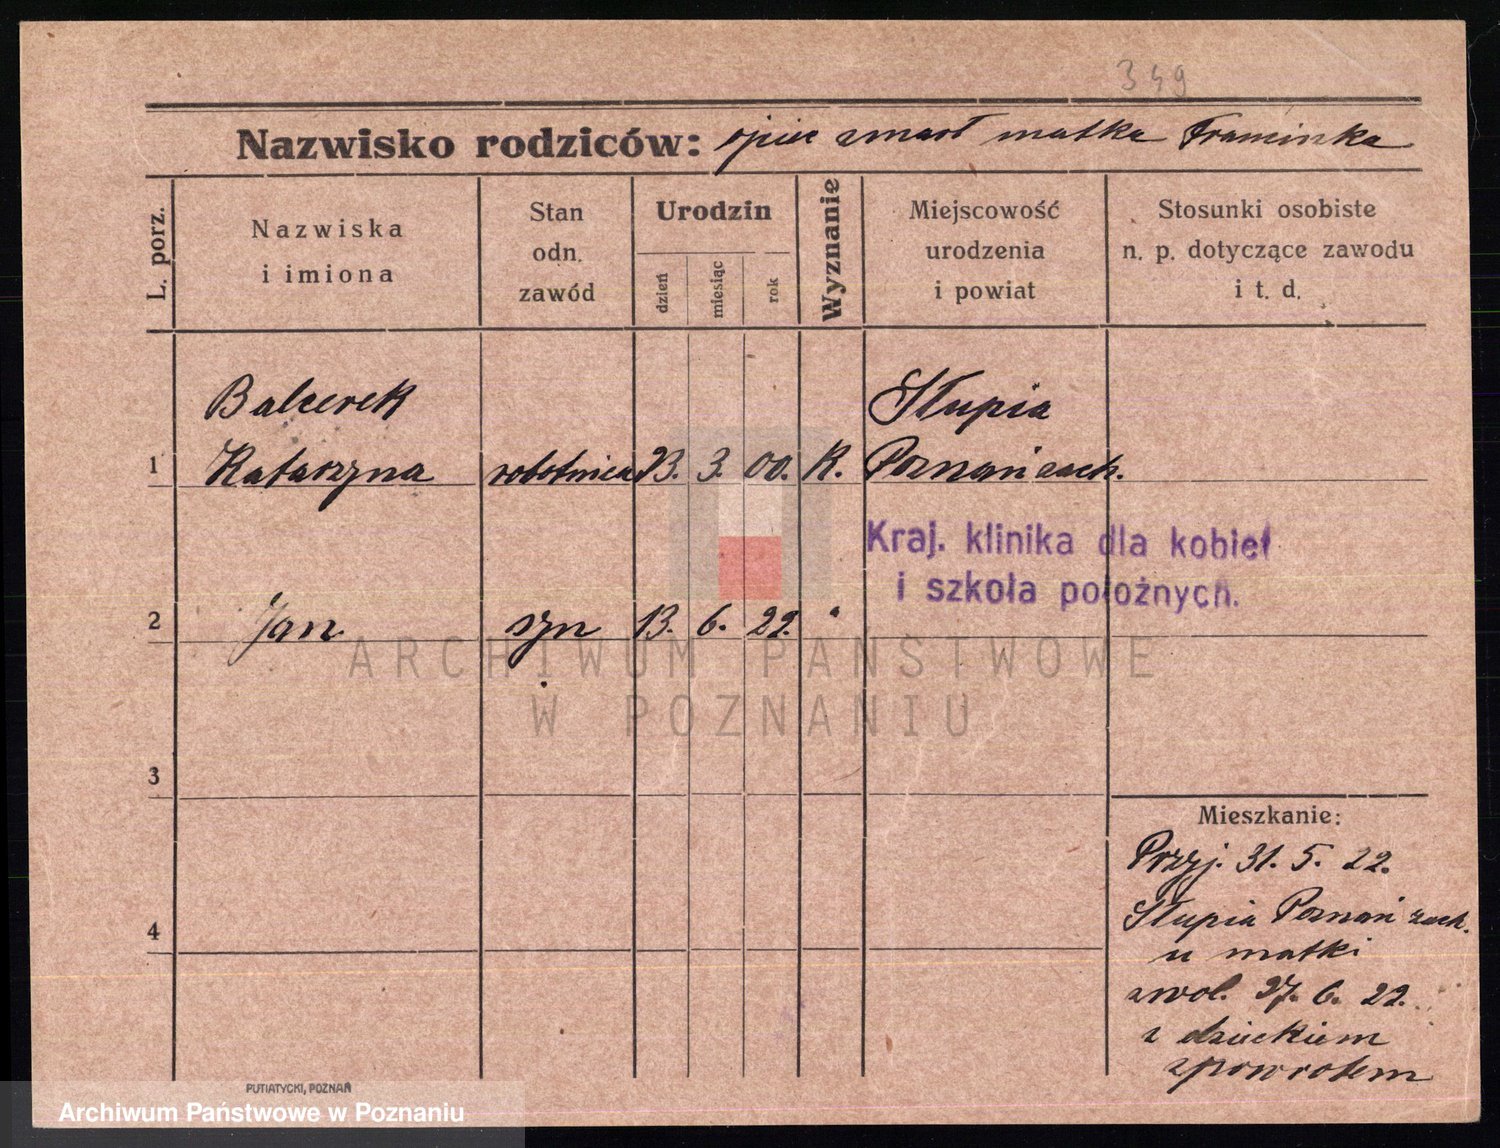 349
Nazwisko rodziców: ojciec zmarł matka Franciszka
L. porz.
Nazwiska
i imiona
Stan
odn.
zawód
Urodzin
dzień
miesiąc
rok
Wyznanie
Miejscowość
urodzenia
i powiat
Stosunki osobiste
n. p. dotyczące zawodu
i t. d.
Balcerek Słupia
1 Katarzyna robotnica 23. 3. 00. K. Poznań zach.
Kraj. klinika dla kobiet
i szkoła położnych.
2 Jan syn 13. 6. 22. "
ARCHIWUM PAŃSTWOWE
W POZNANIU
3
4
Mieszkanie:
Przyj. 31. 5. 22.
Słupia Poznań zach.
u matki
zwol. 27. 6. 22.
z dzieckiem
zpowrotem
PUTIATYCKI, POZNAŃ
Archiwum Państwowe w Poznaniu